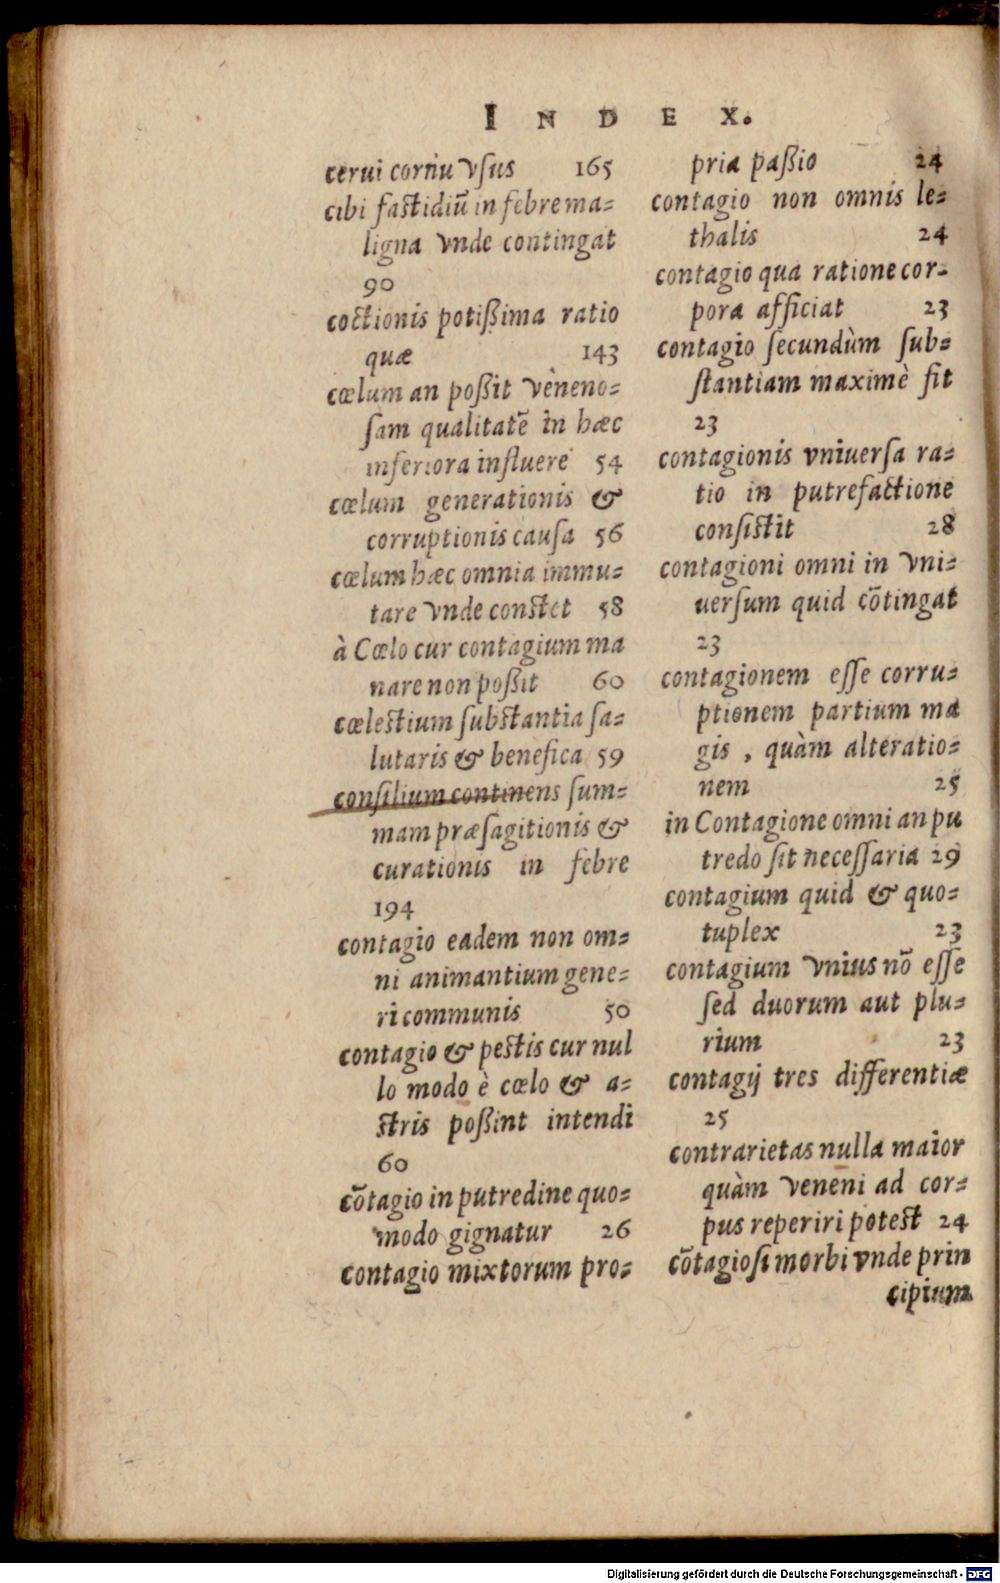 INDEX.
cerui cornu vsus 165
cibi fastidiū in febre ma=
ligna vnde contingat
90
coctionis potißima ratio
quæ 143
cœlum an poßit veneno=
sam qualitatē in hæc
inferiora influere 54
cœlum generationis &
corruptionis causa 56
cœlum hæc omnia immu=
tare vnde constet 58
à Cœlo cur contagium ma
nare non poßit 60
cœlestium substantia sa=
lutaris & benefica 59
consilium continens sum=
mam præsagitionis &
curationis in febre
194
contagio eadem non om=
ni animantium gene=
ri communis 50
contagio & pestis cur nul
lo modo è cœlo & a=
stris poßint intendi
60
cōtagio in putredine quo=
modo gignatur 26
contagio mixtorum pro=
pria paßio 24
contagio non omnis le=
thalis 24
contagio qua ratione cor=
pora afficiat 23
contagio secundùm sub=
stantiam maximè fit
23
contagionis vniuersa ra=
tio in putrefactione
consistit 28
contagioni omni in vni=
uersum quid cōtingat
23
contagionem esse corru=
ptionem partium ma
gis, quàm alteratio=
nem 25
in Contagione omni an pu
tredo sit necessaria 29
contagium quid & quo=
tuplex 23
contagium vnius nō esse
sed duorum aut plu=
rium 23
contagij tres differentiæ
25
contrarietas nulla maior
quàm veneni ad cor=
pus reperiri potest 24
cōtagiosi morbi vnde prin
cipium
Digitalisierung gefördert durch die Deutsche Forschungsgemeinschaft - DFG